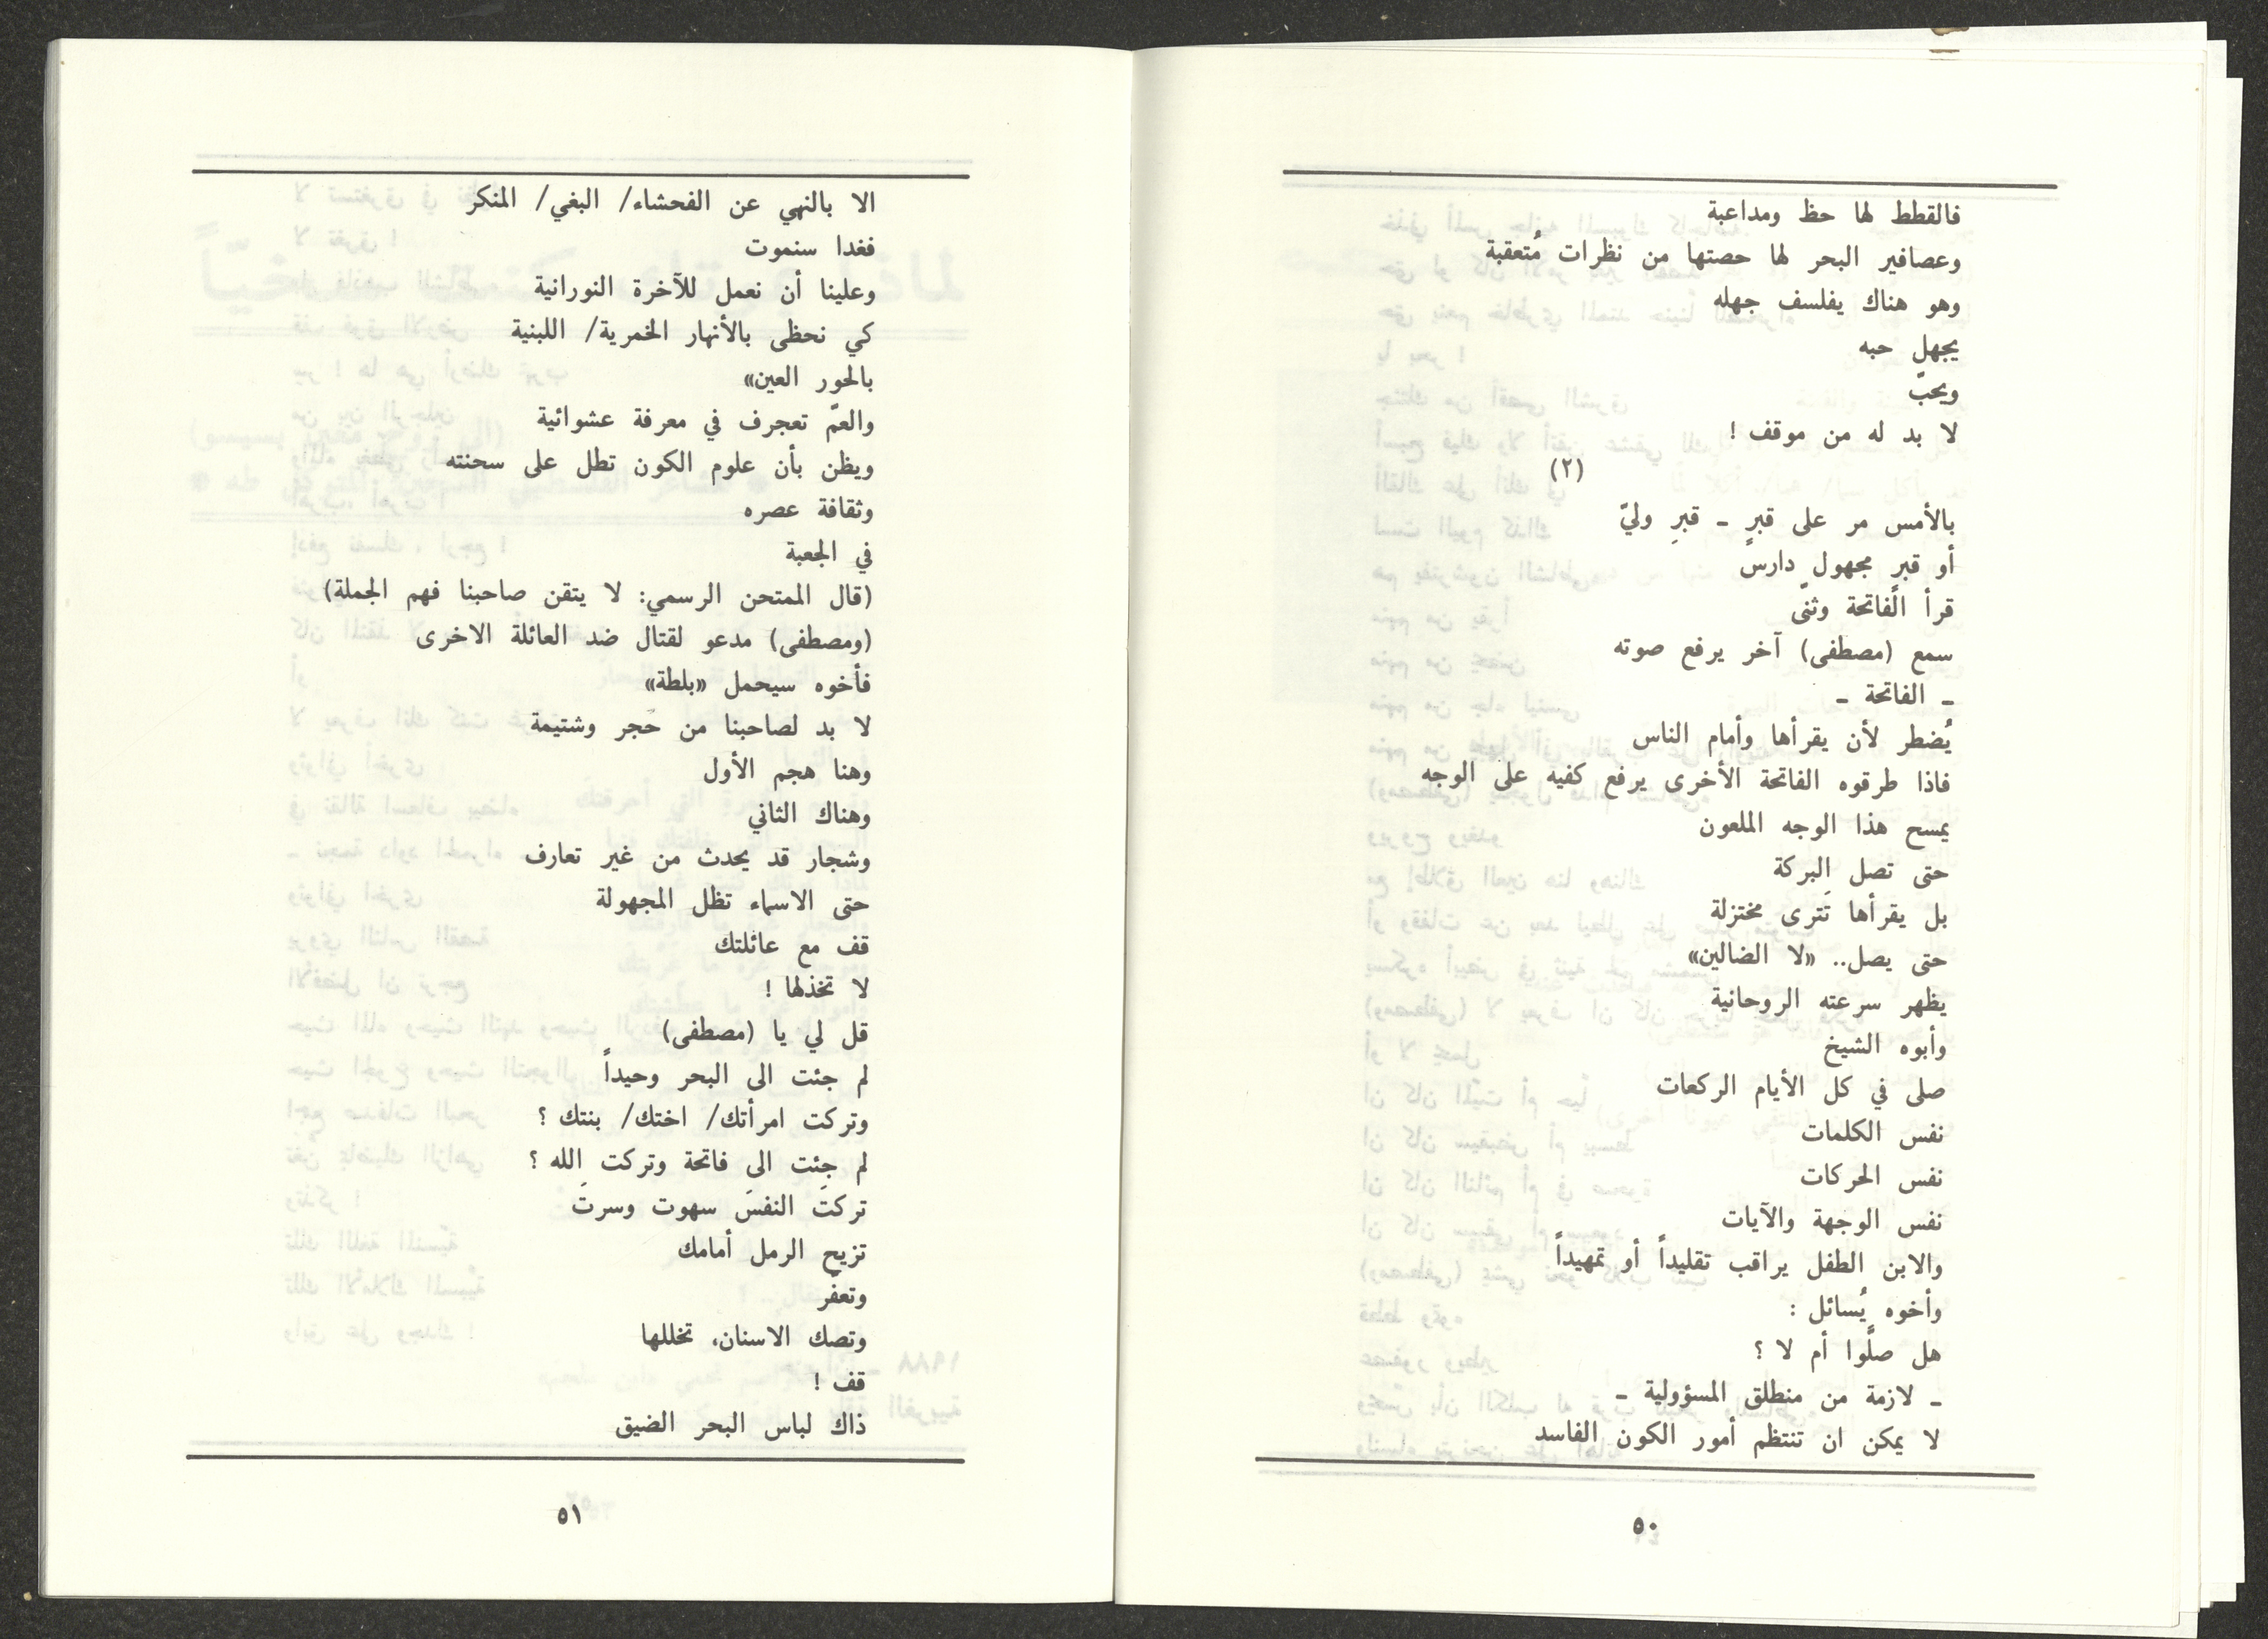 فالقطط لها حظ ومداعبة
وعصافير البحر لها حصتها من نظرات مُتعقبة
وهو هناك يفلسف جهله
يجهل حبه
ويحبّ
لا بد له من موقف !
(٢)
بالأمس مر على قبرٍ ـ قبرِ وليّ
أو قبرٍ مجهولٍ دارسٍ
قرأ الفاتحة وثنّى
سمع (مصطفى) آخر يرفع صوته
ـ الفاتحة ـ
يُضطر لأن يقرأها وأمام الناس
فاذا طرقوه الفاتحة الأخرى يرفع كفيه على الوجه
يمسح هذا الوجه الملعون
حتى تصل البركة
بل يقرأها تَترى مختزلة
حتى يصل.. «لا الضالين»
يظهر سرعته الروحانية
وأبوه الشيخ
صلى في كل الأيام الركعات
نفس الكلمات
نفس الحركات
نفس الوجهة والآيات
والابن الطفل يراقب تقليداً أو تمهيداً
وأخوه يُسائل :
هل صلَّوا أم لا ؟
ـ لازمة من منطلق المسؤولية ـ
لا يمكن ان تنتظم أمور الكون الفاسد
٥٠
الا بالنهي عن الفحشاء/ البغي/ المنكر
فغدا سنموت
وعلينا أن نعمل للآخرة النورانية
كي نحظى بالأنهار الخمرية/ اللبنية
بالحور العين»
والعمّ تعجرف في معرفة عشوائية
ويظن بأن علوم الكون تطل على سحنته
وثقافة عصره
في الجعبة
(قال الممتحن الرسمي: لا يتقن صاحبنا فهم الجملة)
(ومصطفى) مدعو لقتال ضد العائلة الاخرى
فأخوه سيحمل «بلطة»
لا بد لصاحبنا من حَجر وشتيمة
وهنا هجم الأول
وهناك الثاني
وشجار قد يحدث من غير تعارف
حتى الاسماء تظل المجهولة
قف مع عائلتك
لا تخذلها !
قل لي يا (مصطفى)
لم جئت الى البحر وحيداً
وتركت امرأتك/ اختك/ بنتك ؟
لم جئت الى فاتحة وتركت الله ؟
تركتَ النفسَ سهوت وسرتَ
تزيح الرمل أمامك
وتعفّر
وتصك الاسنان، تخللها
قف !
ذاك لباس البحر الضيق
٥١